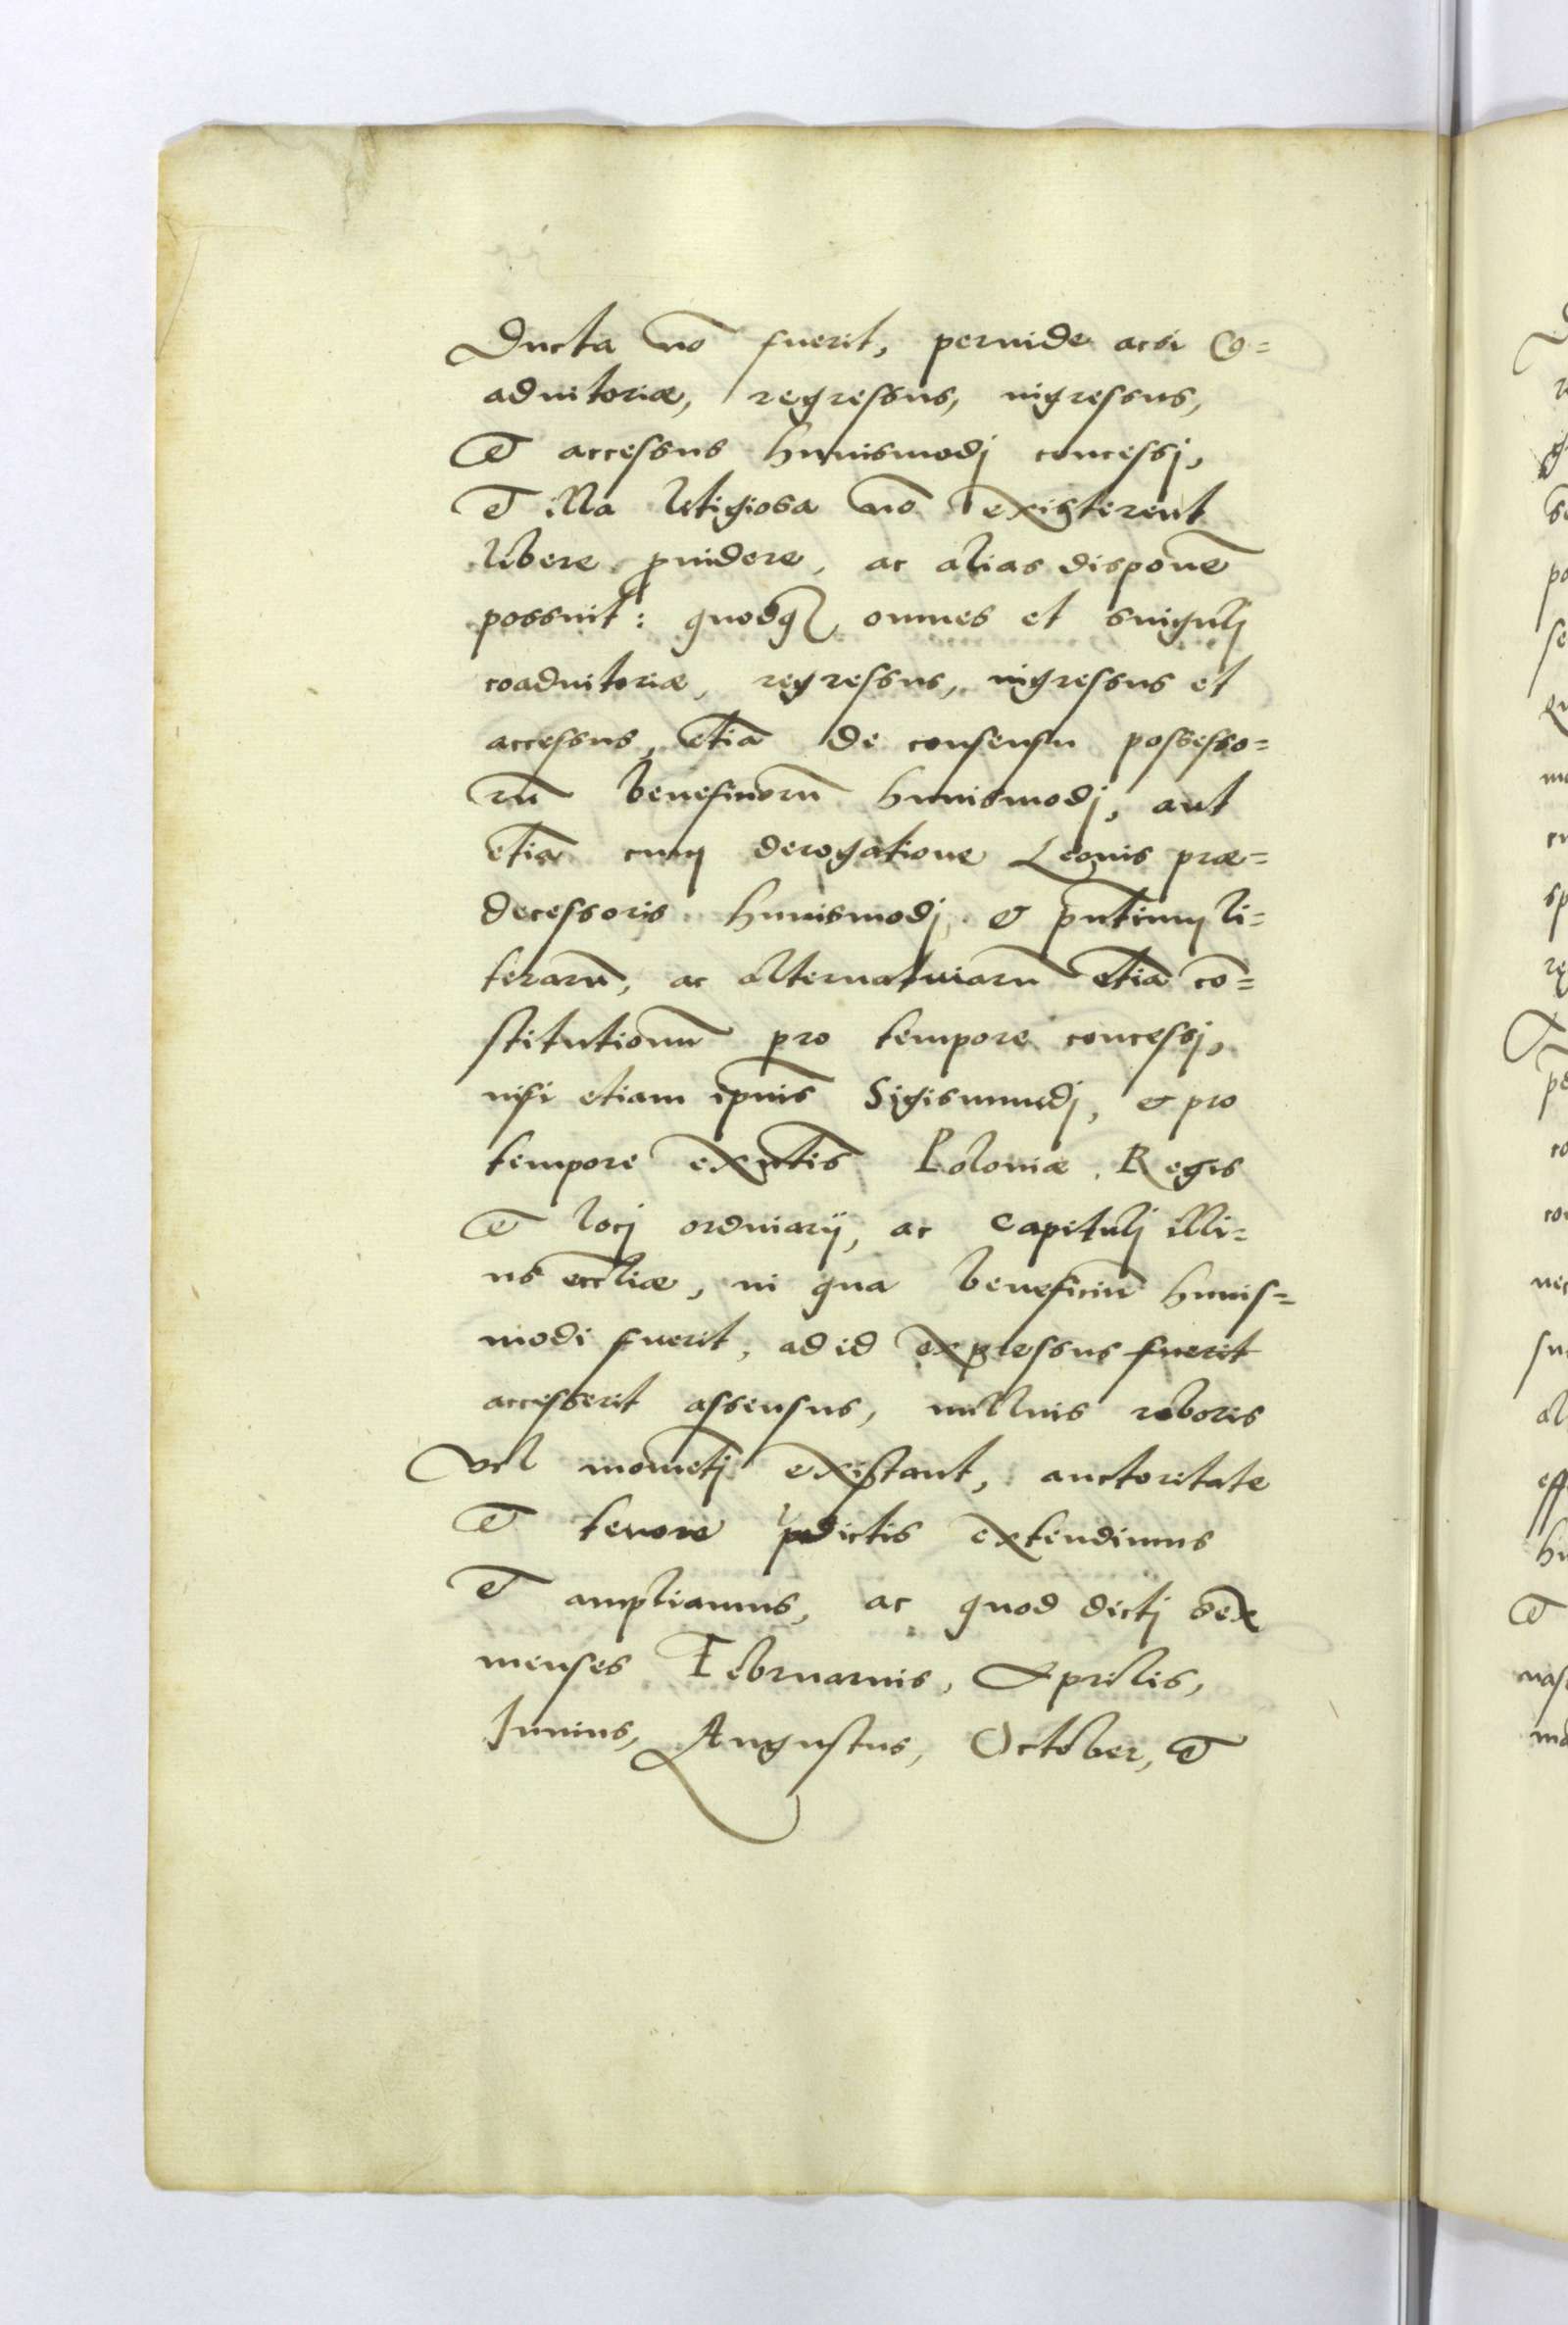 Ducta nō fuerit, perinde acsi Co=
adiutoriæ, regressus, ingressus,
et accessus huiusmodj concessj,
et illa litigiosa nō existerent
libere ꝓuidere, ac alias disponē
possint: quodqꝫ omnes et singulj
coadiutoriæ, regressus, ingressus et
accessus, etiā de consensu possesso=
rū beneficiorū huiusmodj, aut
etiā cum derogatione Leonis præ=
decessoris huiusmodj & pn̄tium li=
terarū, ac alternatiuarū etiā cō=
stitutionū pro tempore concessj,
nisi etiam ip̄ius Sigismundj, & pro
tempore exn̄tis Poloniæ Regis
et locj ordinarij, ac Capitulj illi=
us eccl̄iæ, in qua beneficiū huius=
modi fuerit, ad id expressus fuerit
accesserit assensus, nullius roboris
vel momētj existant, auctoritate
et tenore p̄dictis extendimus
et ampliamus, ac quod dictj sex
menses Februarius, Aprilis,
Junius, Augustus, October, et